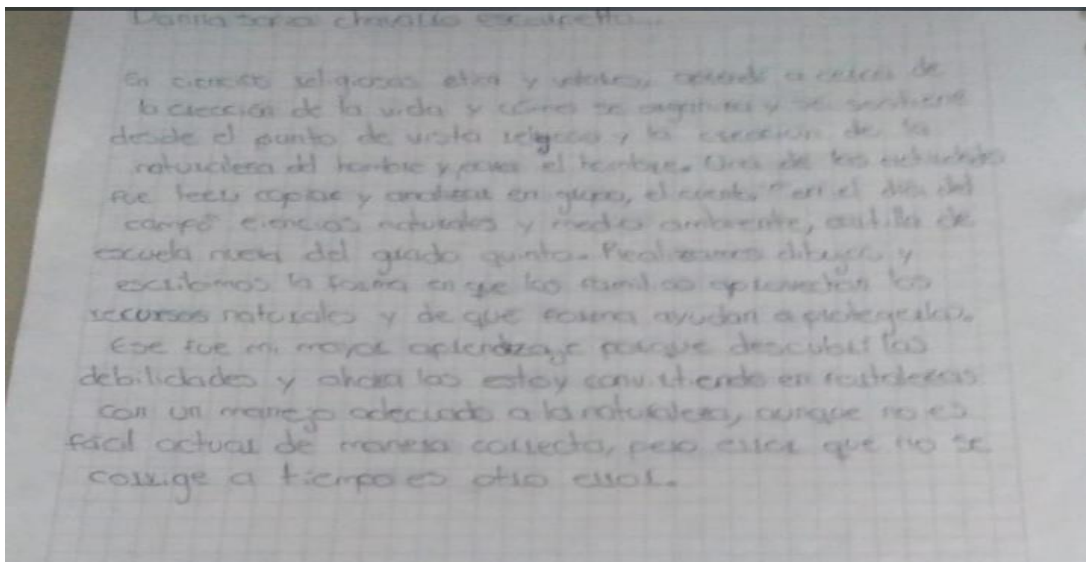 Danna
En ciencias religiosas etica y valores, aprendi a cerca de
la creccion de la vida y como se y se sostiene
desde el punto de vista religioso y la creccion de la
naturaleza del hombre y para el hombre. Una de las
fue leer copiar y analizar en grupo, el cuento "en el dia del
campo ciencias naturales y medio ambiente, cartilla de
escuela nueva del grado quinto. Realizamos dibujos y
escribimos la forma en que las familias aprovechan los
recursos naturales y de que forma ayudan a protegerlos.
Ese fue mi mayor aprendizaje porque descubri las
debilidades y ahora las estoy convirtiendo en fortalezas
con un manejo adecuado a la naturaleza, aunque no es
facil actuar de manera correcta, pero error que no se
corrige a tiempo es otro error.